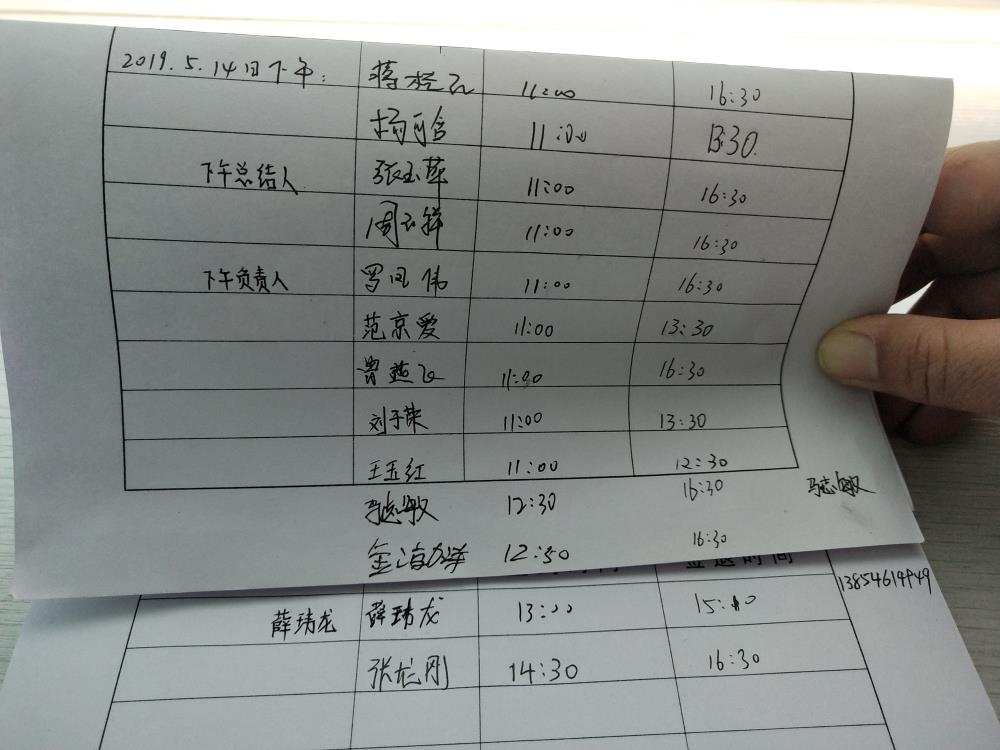 2019.5.14日下午: 11:00 16:30
杨可含 11:00 13:30.
下午总结人 张玉萍 11:00 16:30
周玉祥 11:00 16:30
下午负责人 罗凤伟 11:00 16:30
范京爱 11:00 13:30
曾燕飞 11:00 16:30
刘子荣 11:00 13:30
王玉红 11:00 12:30
马志敏 12:30 16:30 马志敏
12:50 16:30
薛玮龙 薛玮龙 13:00 15:00
张龙刚 14:30 16:30